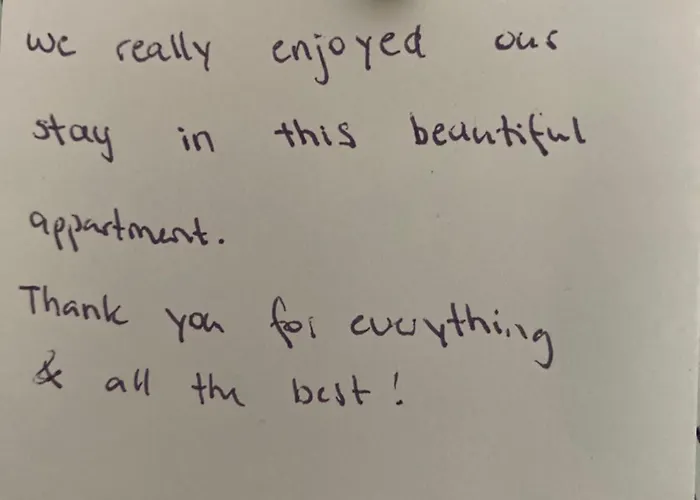 We really enjoyed our
stay in this beautiful
appartment.
Thank you for everything
& all the best!